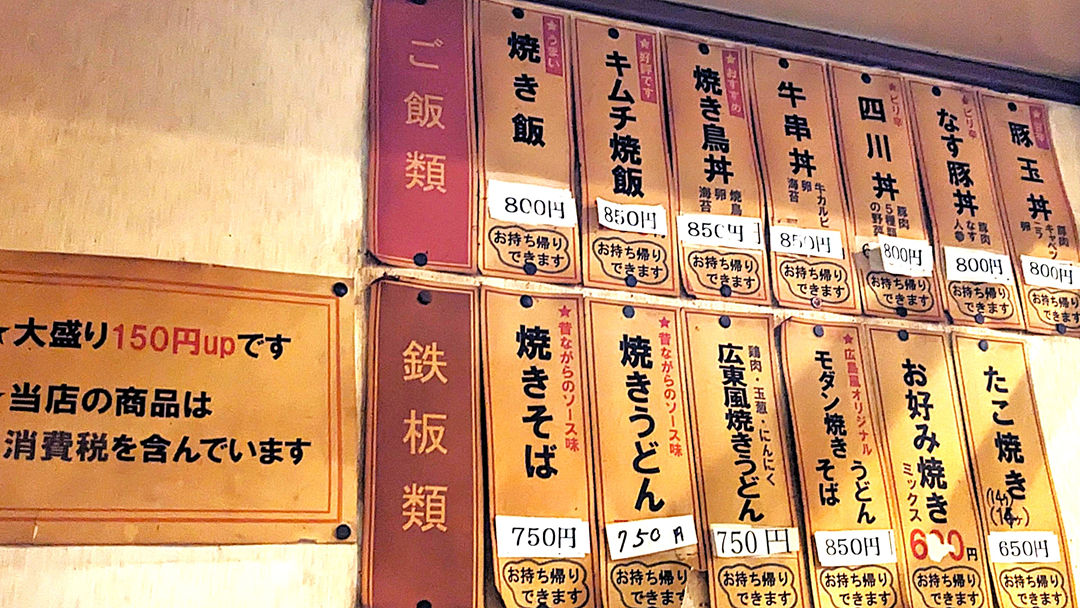 ご飯類
★うまい
焼き飯
800円
お持ち帰り
できます
★好評です
キムチ焼飯
850円
お持ち帰り
できます
★おすすめ
焼き鳥丼
焼鳥
卵
海苔
850円
お持ち帰り
できます
牛串丼
牛カルビ
卵
海苔
850円
お持ち帰り
できます
★ピリ辛
四川丼
豚肉
5種類
の野菜
800円
お持ち帰り
できます
★ピリ辛
なす豚丼
豚肉
なす
人参
800円
お持ち帰り
できます
豚玉丼
豚肉
キャベツ
卵
800円
お持ち帰り
できます
★大盛り150円upです
★当店の商品は
消費税を含んでいます
鉄板類
★昔ながらのソース味
焼きそば
750円
お持ち帰り
できます
★昔ながらのソース味
焼きうどん
750円
お持ち帰り
できます
鶏肉・玉葱・にんにく
広東風焼きうどん
750円
お持ち帰り
できます
★広島風オリジナル
モダン焼き
うどん
そば
850円
お持ち帰り
できます
お好み焼き
ミックス
円
お持ち帰り
できます
たこ焼き
(14ヶ)
650円
お持ち帰り
できます